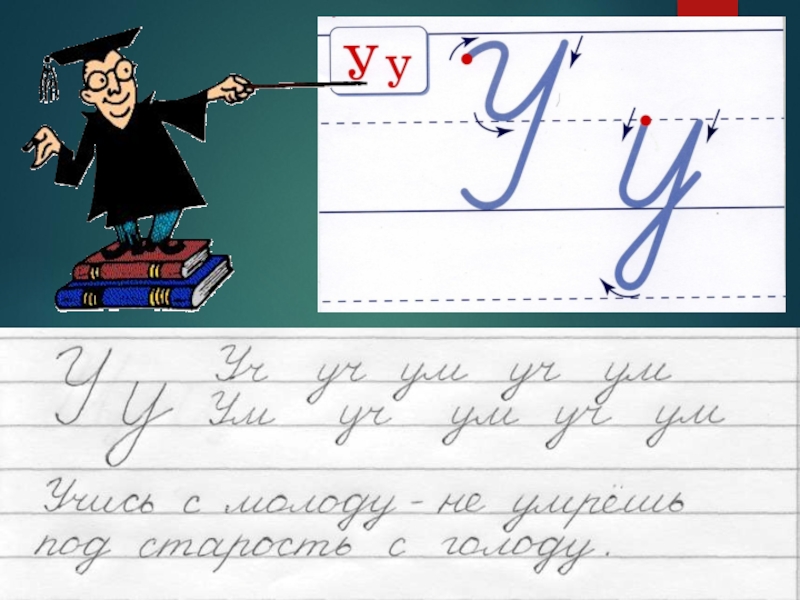 У у
У у
У у Уч уч ум уч ум
Ум уч ум уч ум
Учись с молоду - не умрёшь
под старость с голоду.